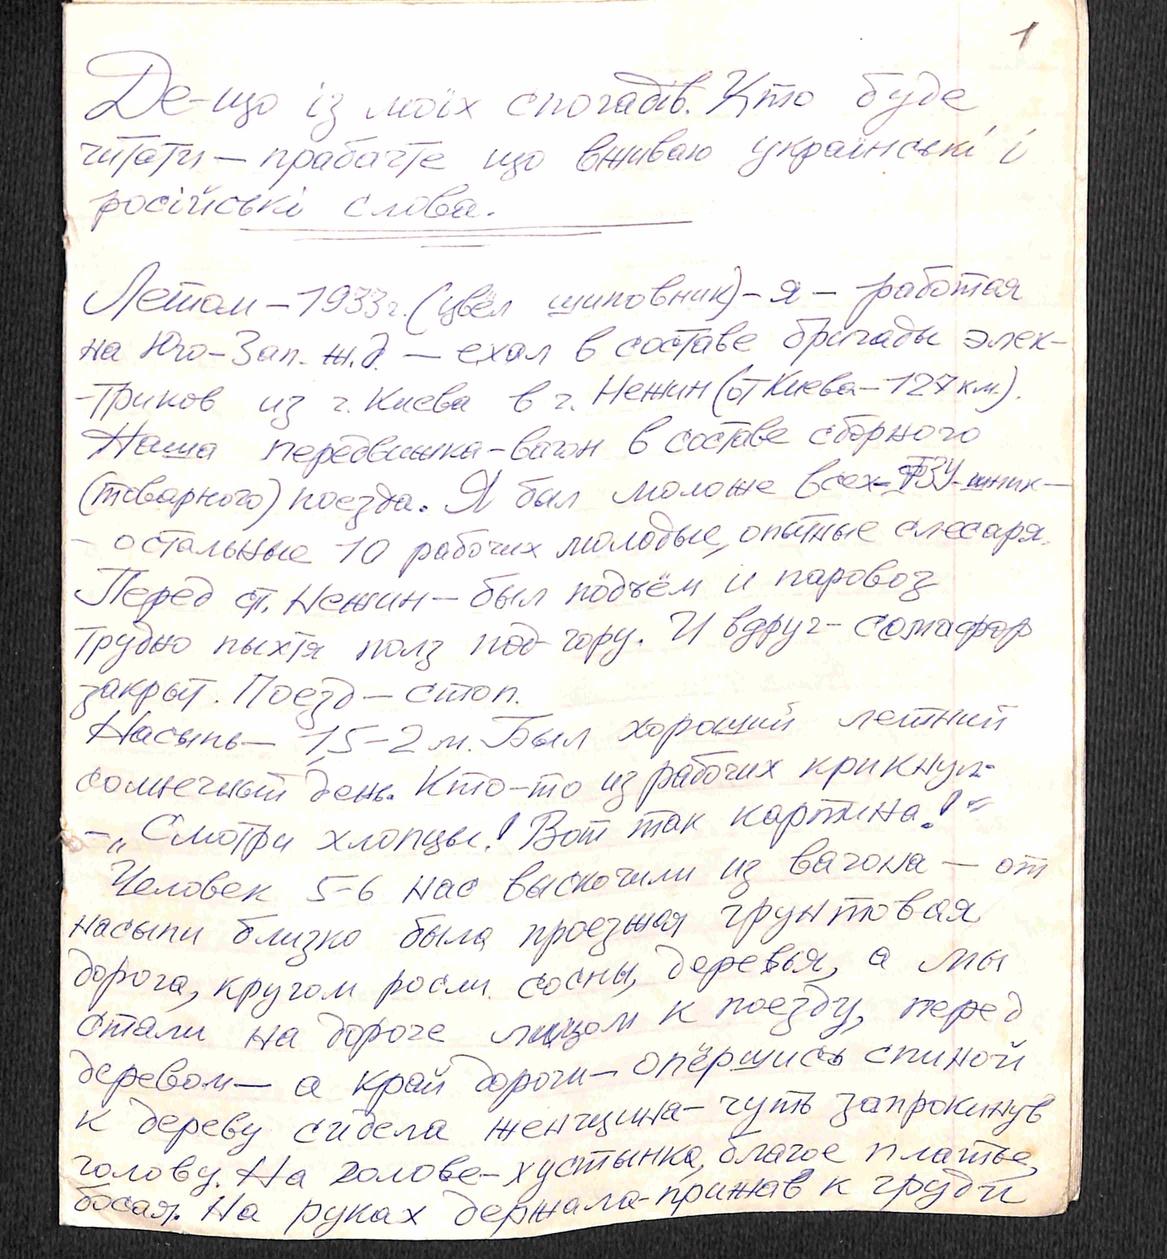 1
Де-що із моїх спогадів. Кто буде
читати — прабачте що вживаю українські і
російські слова.
Летом — 1933 г. (цвёл шиповник) — я — работая
на Юго-Зап. ж.д — ехал в составе бригады элек-
-триков из г. Киева в г. Нежин (от Киева — 127 км).
Наша передвижка-вагон в составе сборного
(товарного) поезда. Я был моложе всех — ФЗУ-шник —
- остальные 10 рабочих молодые, опытные слесаря.
Перед ст. Нежин — был подъём и паровоз
трудно пыхтя полз под гору. И вдруг — семафор
закрыт. Поезд — стоп.
Насыпь — 1,5-2 м. Был хороший летний
солнечный день. Кто-то из рабочих крикнул —
— „Смотри хлопцы! Вот так картина!"
Человек 5-6 нас выскочили из вагона — от
насыпи близко была проезжая грунтовая
дорога, кругом росли сосны, деревья, а мы
стали на дороге лицом к поезду, перед
деревом — а край дороги — опёршись спиной
к дереву сидела женщина — чуть запрокинув
голову. На голове — хустынка, благое платье,
босая. На руках держала — прижав к груди